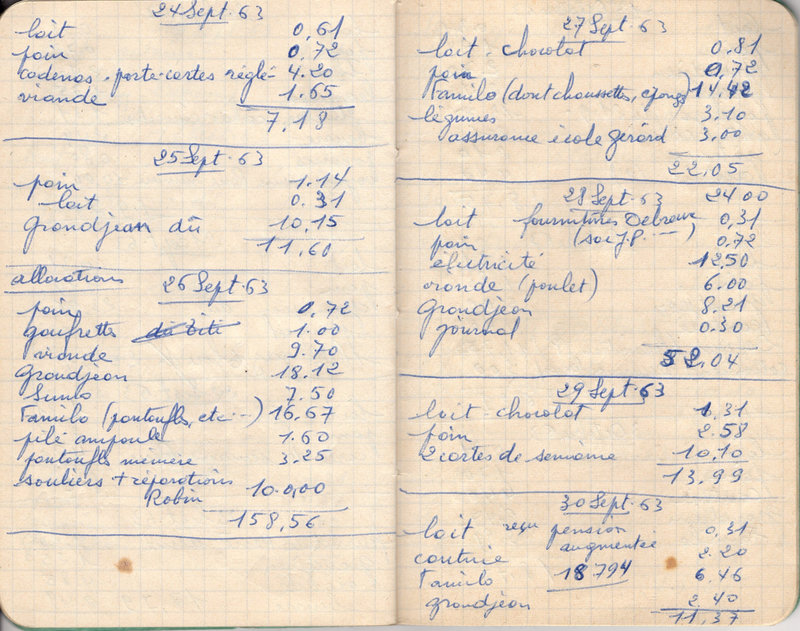 24 Sept. 63
lait 0,61
pain 0,72
cadenas. porte-cartes réglé 4.20
viande 1.65
7,18
25 Sept. 63
pain 1.14
lait 0.31
grandjean dû 10,15
11,60
allocations 26 Sept. 63
pain 0,72
gaufrettes 1.00
viande 9.70
Grandjean 18.12
Sunlo 7.50
Familo (pantoufls, etc...) 16,67
pile ampoule 1.60
pantoufls mémère 3.25
souliers + réparations
Robin 100,00
158,56
27 Sept. 63
lait. chocolat 0.81
pain 0,72
Familo (dont chaussettes, ) 14,42
légumes 3.10
assurance école gérard 3.00
22,05
28 Sept. 63 24 00
lait fournitures 0,31
pain (sac J.P. ...) 0,72
électricité 12,50
viande (poulet) 6.00
Grandjean 8.21
journal 0.30
52,04
29 Sept. 63
lait chocolat 1.31
pain 2.58
2 cartes de semaine 10,10
13,99
30 Sept. 63
lait reçu pension 0,31
augmentée
couture 2.20
Familo 18794 6,46
grandjean 2.40
11,37